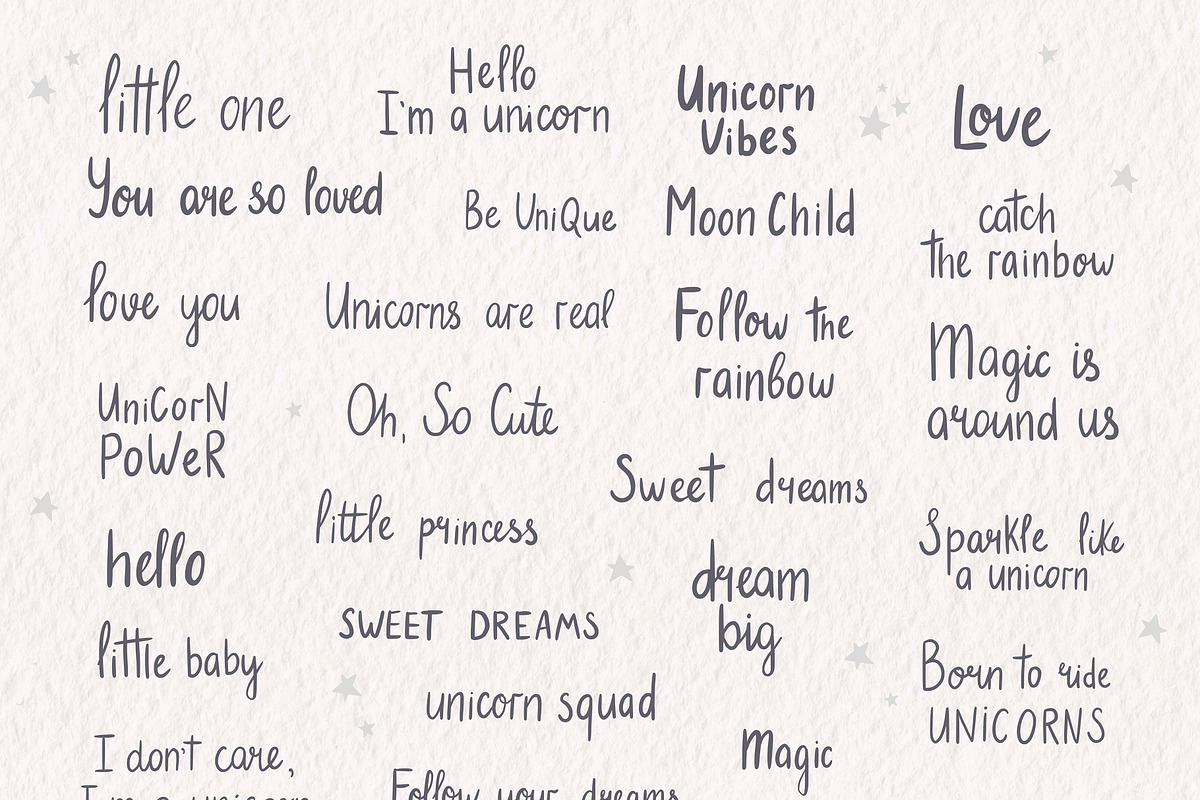 little one
Hello
I'm a unicorn
Unicorn
Vibes
Love
You are so loved
Be UniQue
Moon Child
catch
the rainbow
love you
Unicorns are real
Follow the
rainbow
Magic is
around us
UniCorN
PoWeR
Oh, So Cute
Sweet dreams
little princess
hello
dream
big
Sparkle like
a unicorn
SWEET DREAMS
little baby
unicorn squad
Born to ride
UNiCORNS
I don't care,
I'm a unicorn
Magic
Follow your dreams